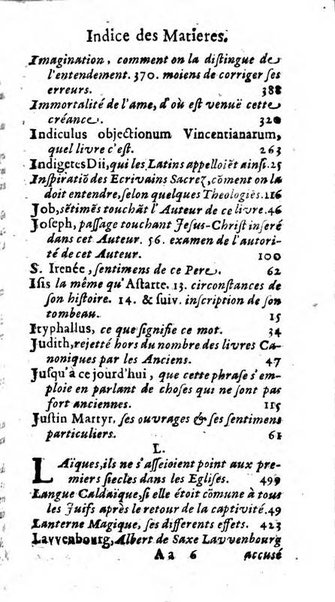 Indice des Matieres.
Imagination, comment on la distingue de
l'entendement. 370. moiens de corriger ses
erreurs. 388
Immortalité de l'ame, d'où est venuë cette
créance. 320
Indiculus objectionum Vincentianarum,
quel livre c'est. 263
Indigetes Dii, qui les Latins appelloiẽt ainsi. 25
Inspiratiõ des Ecrivains Sacrez, cõment on la
doit entendre, selon quelques Theologiẽs. 116
Job, sẽtimẽs touchãt l'Auteur de ce livre. 46
Joseph, passage touchant Jesus-Christ inseré
dans cet Auteur. 56. examen de l'autori-
té de cet Auteur. 100
S. Irenée, sentimens de ce Pere. 62
Isis la même qu'Astarte. 13. circonstances de
son histoire. 14. & suiv. inscription de son
tombeau. 15
Ityphallus, ce que signifie ce mot. 34
Judith, rejetté hors du nombre des livres Ca-
noniques par les Anciens. 47
Jusqu'à ce jourd'hui, que cette phrase s'em-
ploie en parlant de choses qui ne sont pas
fort anciennes. 115
Justin Martyr. ses ouvrages & ses sentimens
particuliers. 61
L.
LAïques, ils ne s'asseioient point aux pre-
miers siecles dans les Eglises. 499
Langue Caldaïque, si elle étoit cõmune à tous
les Juifs après le retour de la captivité. 49
Lanterne Magique, ses differents effets. 423
Lavvenbourg, Albert de Saxe Lavvenbourg
Aa 6 accusé